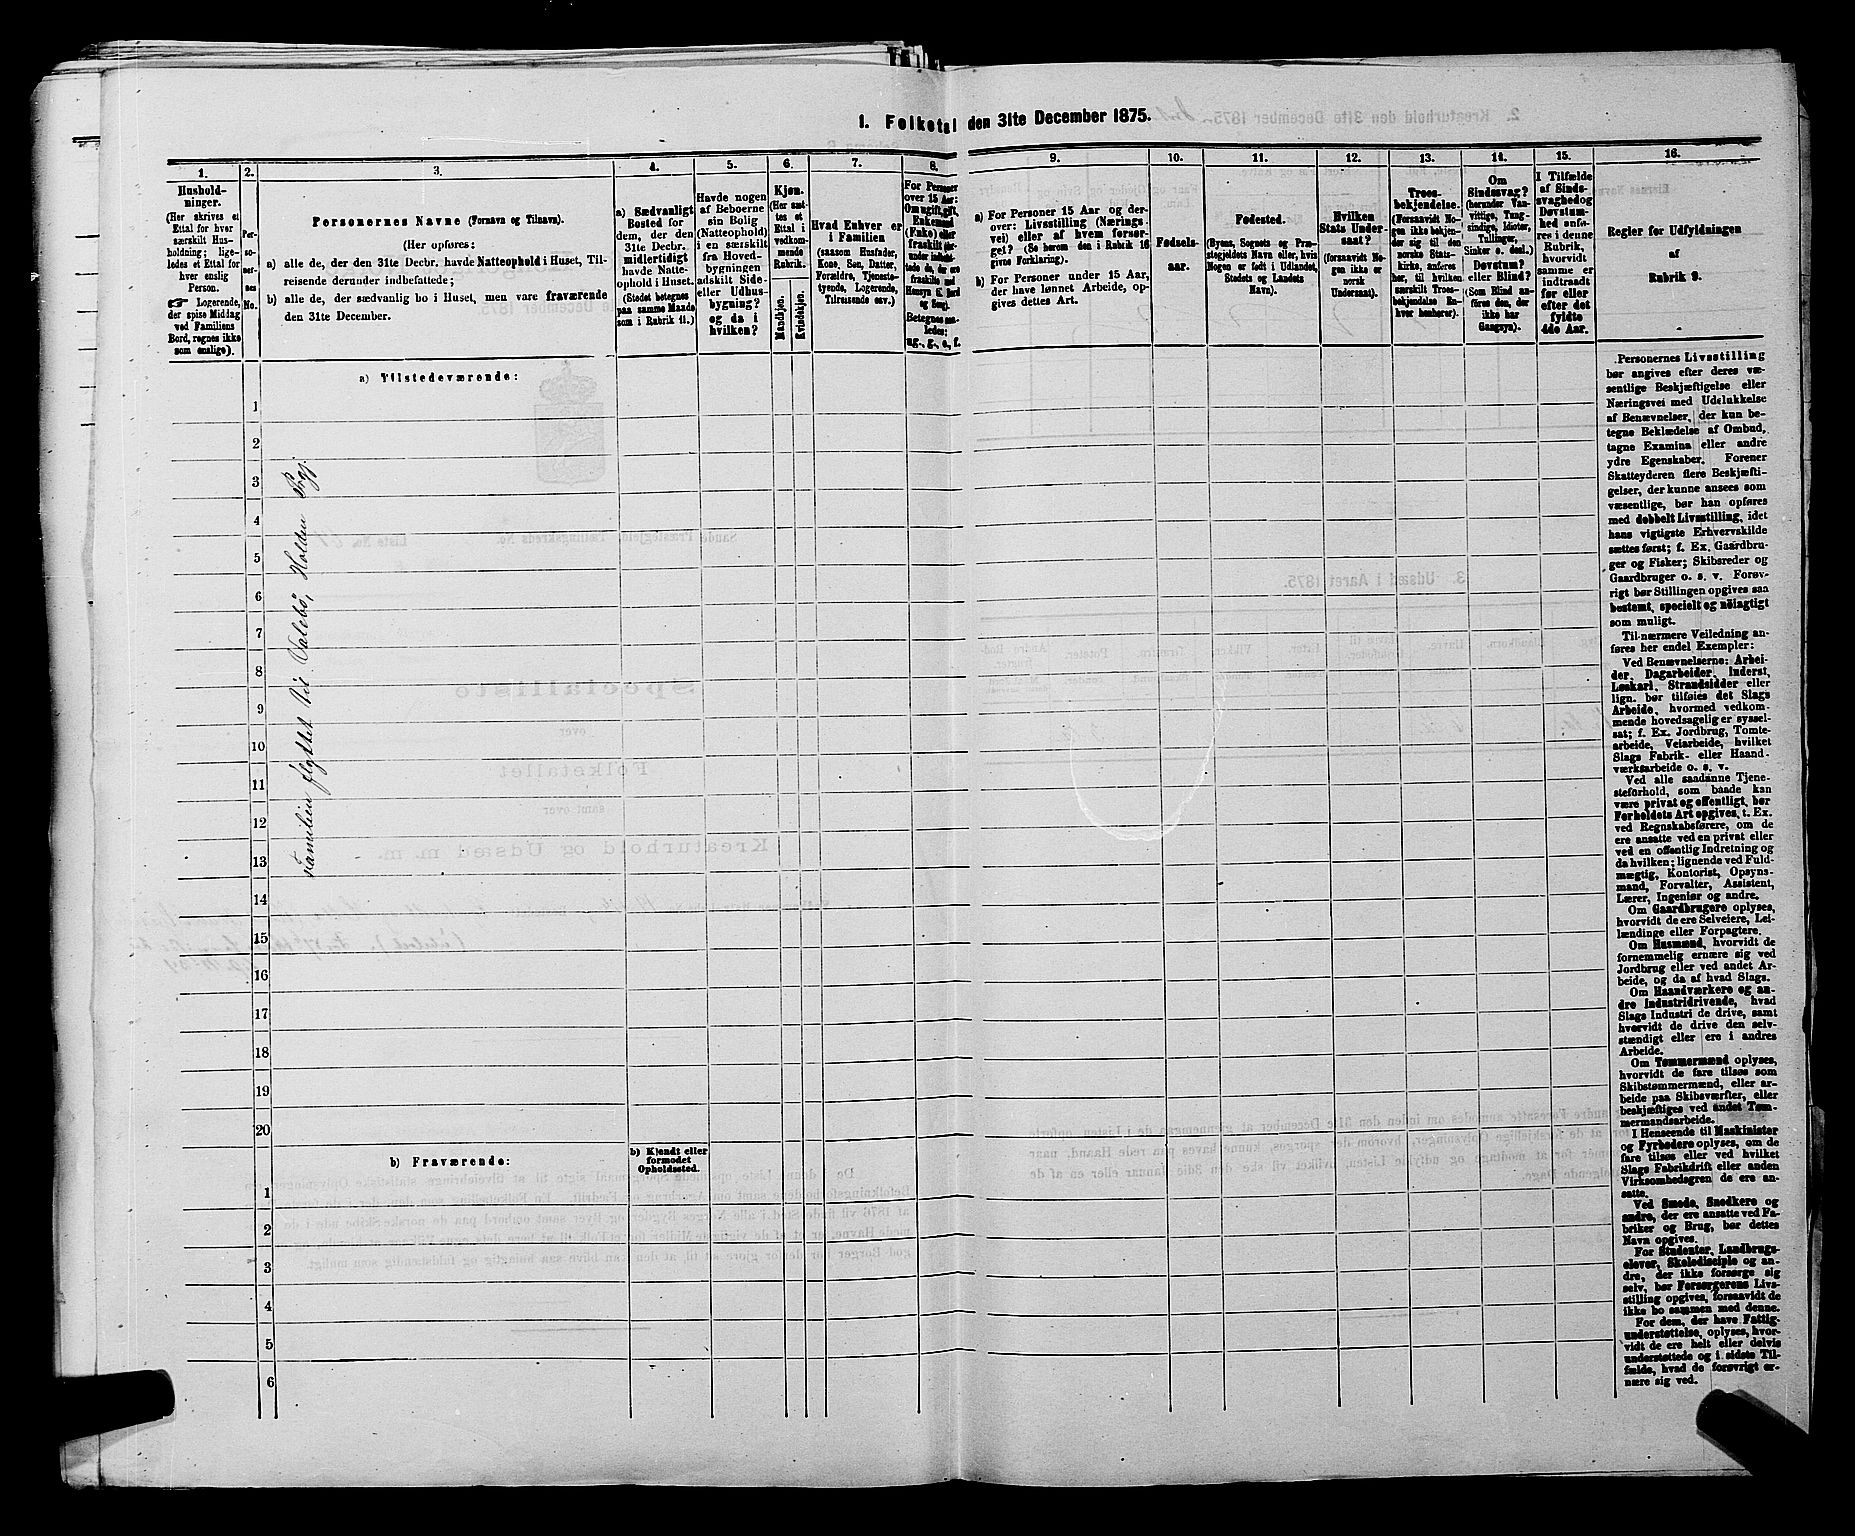 1. Folketal den 31te December 1875.
1.
Hushold-
ninger.
(Her skrives et
Ettal for hver
særskilt Hus-
holdning; lige-
ledes et Ettal for
hver enslig
Person.
Logerende,
der spise Middag
ved Familiens
Bord, regnes ikke
som enslige).
2.
Per-
so-
ner-
nes
No.
3.
Personernes Navne (Fornavn og Tilnavn).
(Her opføres:
a) alle de, der den 31te Decbr. havde Natteophold i Huset, Til-
reisende derunder indbefattede;
b) alle de, der sædvanlig bo i Huset, men vare fraværende
den 31te December.
4.
a) Sædvanligt
Bosted for
dem, der den
31te Decbr.
midlertidigt
havde Natte-
ophold i Huset.
(Stedet betegnes
paa samme Maade
som i Rubrik 11.)
5.
Havde nogen
af Beboerne
sin Bolig
(Natteophold)
i en særskilt
fra Hoved-
bygningen
adskilt Side-
eller Udhus-
bygning?
og da i
hvilken?
6.
Kjøn.
(Her sæt-
tes et
Ettal i
vedkom-
mende
Rubrik.
Mandkjøn.
Kvindekjøn.
7.
Hvad Enhver er
i Familien
(saasom Husfader,
Kone, Søn, Datter,
Forældre, Tjeneste-
tyende, Logerende,
Tilreisende osv.)
8.
For Personer
over 15 Aar:
Om ugift, gift,
Enkemand
(Enke) eller
fraskilt
Betegnes saa-
ledes:
ug., g., e., f.
9.
a) For Personer 15 Aar og der-
over: Livsstilling (Nærings-
vei) eller af hvem forsør-
get? (Se herom den i Rubrik 16
givne Forklaring).
b) For Personer under 15 Aar,
der have lønnet Arbeide, op-
gives dettes Art.
10.
Fødsels-
aar.
11.
Fødested.
(Byens, Sognets og Præ-
stegjeldets Navn eller, hvis
Nogen er født i Udlandet,
Stedets og Landets
Navn).
12.
Hvilken
Stats Under-
saat?
(forsaavidt No-
gen ikke er
norsk
Undersaat).
13.
Troes-
bekjendelse.
(Forsaavidt No-
gen ikke bekjen-
der sig til den
norske Stats-
kirke, anføres
her, til hvilken
særskilt Troes-
bekjendelse En-
hver henhører).
14.
Om
Sindssvag?
(herunder Van-
vittige, Tung-
sindige, Idioter,
Tullinger,
Sinker o. desl.)
Døvstum?
eller Blind?
(Som Blind an-
føres den, der
ikke har
Gangsyn).
15.
I Tilfælde
af Sinds-
svaghed og
Døvstum-
hed anfø-
res i denne
Rubrik,
hvorvidt
samme er
indtraadt
før eller
efter det
fyldte
4de Aar.
16.
Regler for Udfyldningen
af
Rubrik 9.
a) Tilstedeværende:
1
2
3
4
5
6
7
8
9
10
11
12
13
14
15
16
17
18
19
20
Familien flyttet til Valebø, Holden Prgj.
b) Fraværende:
b) Kjendt eller
formodet
Opholdssted.
1
2
3
4
5
6
Personernes Livsstilling
bør angives efter deres væ-
sentlige Beskjæftigelse eller
Næringsvei med Udelukkelse
af Benævnelser, der kun be-
tegne Beklædelse af Ombud,
tagne Examina eller andre
ydre Egenskaber. Forener
Skatteyderen flere Beskjæfti-
gelser, der kunne ansees som
væsentlige, bør han opføres
med dobbelt Livsstilling, idet
hans vigtigste Erhvervskilde
sættes først; f. Ex. Gaardbru-
ger og Fisker; Skibsreder og
Gaardbruger o. s. v. Forøv-
rigt bør Stillingen opgives saa
bestemt, specielt og nöiagtigt
som muligt.
Til nærmere Veiledning an-
føres her endel Exempler:
Ved Benævnelserne: Arbei-
der, Dagarbeider, Inderst,
Løskarl, Strandsidder eller
lign. bør tilføies det Slags
Arbeide, hvormed vedkom-
mende hovedsagelig er syssel-
sat; f. Ex. Jordbrug, Tomte-
arbeide, Veiarbeide, hvilket
Slags Fabrik- eller Haand-
værksarbeide o. s. v.
Ved alle saadanne Tjene-
steforhold, som baade kan
være privat og offentligt, bør
Forholdets Art opgives, t. Ex.
ved Regnskabsførere, om de
ere ansatte ved en privat eller
ved en offentlig Indretning og
da hvilken; lignende ved Fuld-
mægtig, Kontorist, Opsyns-
mand, Forvalter, Assistent,
Lærer, Ingeniør og andre.
Om Gaardbrugere oplyses,
hvorvidt de ere Selveiere, Lei-
lændinge eller Forpagtere.
Om Husmænd, hvorvidt de
fornemmelig ernære sig ved
Jordbrug eller ved andet Ar-
beide, og da af hvad Slags.
Om Haandværkere og an-
dre Industridrivende, hvad
Slags Industri de drive, samt
hvorvidt de drive den selv-
stændigt eller ere i andres
Arbeide.
Om Tømmermænd oplyses,
hvorvidt de fare tilsøs som
Skibstømmermænd, eller ar-
beide paa Skibsværfter, eller
beskjæftiges ved andet Tøm-
mermandsarbeide.
I Henseende til Maskinister
og Fyrbødere oplyses, om de
fare tilsøs eller ved hvilket
Slags Fabrikdrift eller anden
Virksomhedsgren de ere an-
satte.
Ved Smede, Snedkere og
andre, der ere ansatte ved Fa-
briker og Brug, bør dettes
Navn opgives.
For Studenter, Landbrugs-
elever, Skoledisciple og an-
dre, der ikke forsørge sig
selv, bør Forsørgerens Livs-
stilling opgives, forsaavidt de
ikke bo sammen med denne.
For dem, der have Fattig-
understøttelse, oplyses, hvor-
vidt de ere helt eller delvis
understøttede og i sidste Til-
fælde, hvad de forøvrigt er-
nære sig ved.